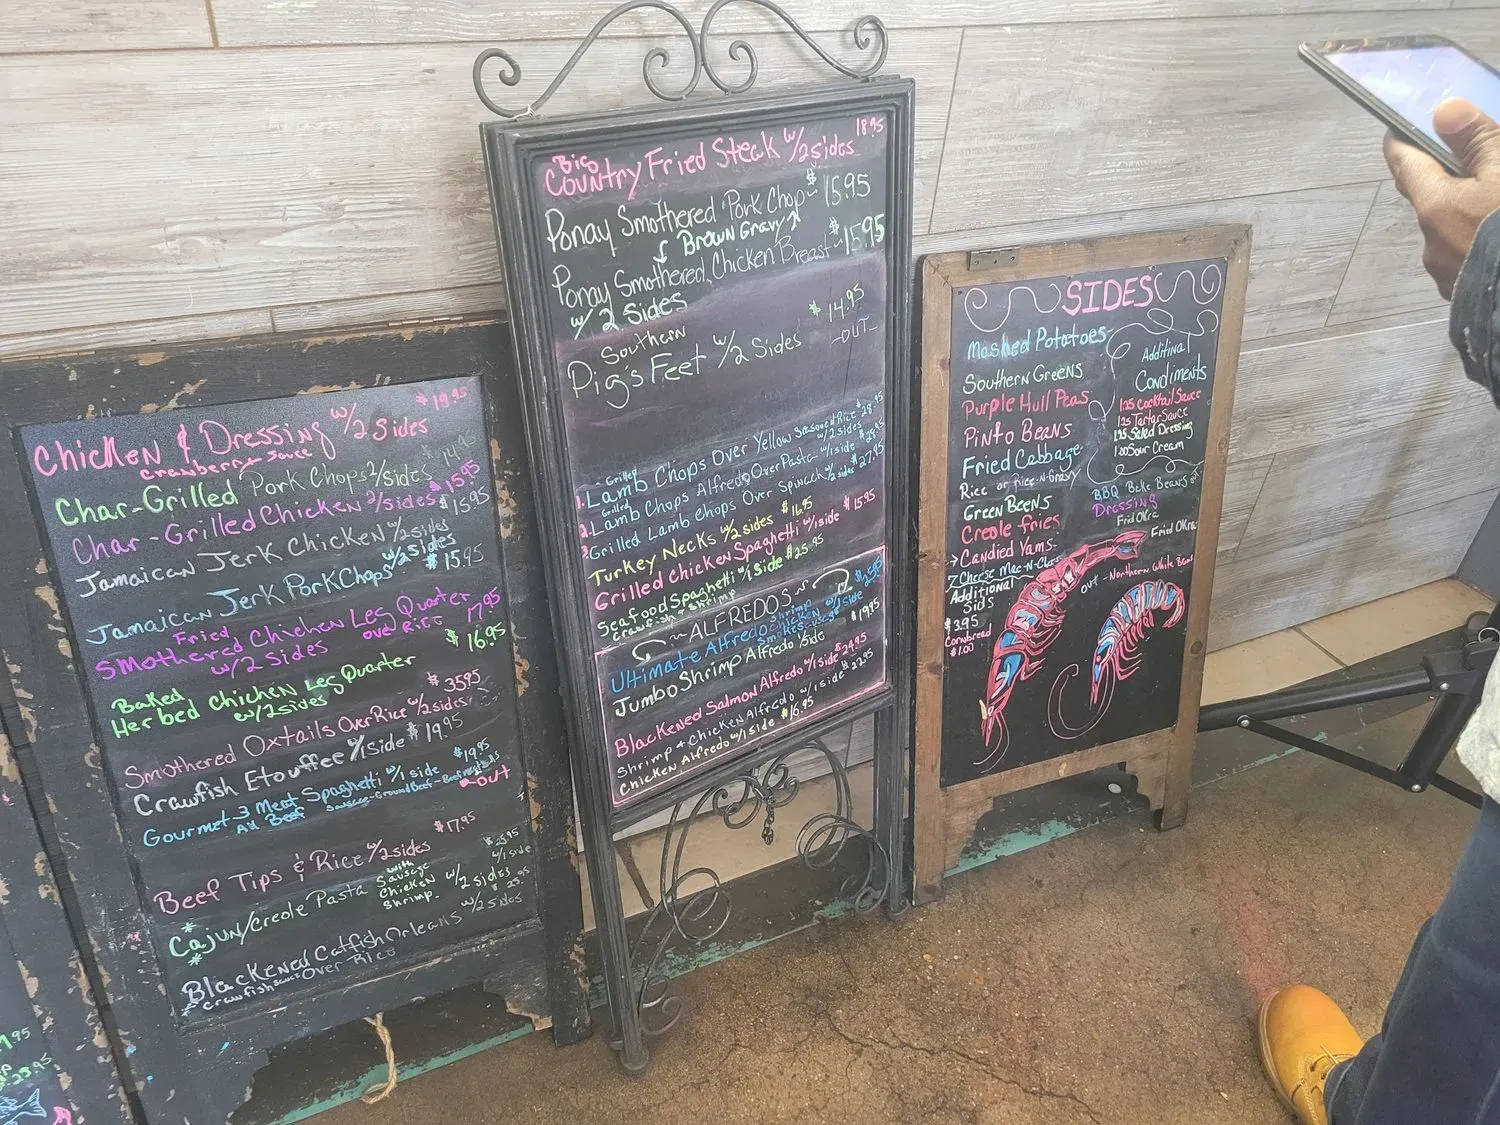 Chicken & Dressing w/2 Sides $19.95
Cranberry Sauce
Char-Grilled Pork Chops 2/sides 14.95
Char-Grilled Chicken 2/sides 15.95
Jamaican Jerk Chicken w/2sides $15.95
Jamaican Jerk Pork Chops w/2sides $15.95
Fried
Smothered Chicken Leg Quarter 17.95
w/2 Sides over Rice
Baked
Herbed Chicken Leg Quarter $16.95
w/2sides
Smothered Oxtails Over Rice w/2sides $35.95
Crawfish Etouffee w/1side $19.95
Gourmet-3 Meat Spaghetti w/1 side $19.95
All Beef Sausage-Ground Beef-
-out
Beef Tips & Rice w/2sides $17.95
Cajun/Creole Pasta with Sausage Chicken Shrimp w/2 sides $25.95
w/1side
Blackened Catfish Orleans w/2 sides 25.95
Crawfish Sauce Over Rice
Big
Country Fried Steak w/2sides 18.95
Ponay Smothered Pork Chop $15.95
Brown Gravy
Ponay Smothered Chicken Breast $15.95
w/ 2 Sides
Southern
Pig's Feet w/2 Sides $14.95
-OUT-
Grilled
1. Lamb Chops Over Yellow Seasoned Rice $28.95
w/2 sides
Grilled
2. Lamb Chops Alfredo Over Pasta w/1side
3. Grilled Lamb Chops Over Spinach w/2 sides $27.95
Turkey Necks w/2 sides $16.95
Grilled Chicken Spaghetti w/1side $15.95
Seafood Spaghetti w/1Side $25.95
Crawfish & Shrimp
~ALFREDOS~
Ultimate Alfredo Shrimp Chicken w/1side $25.95
Jumbo Shrimp Alfredo 1side $19.95
Blackened Salmon Alfredo w/1side $24.95
Shrimp & Chicken Alfredo w/1side $22.95
Chicken Alfredo w/1side $16.95
SIDES
Mashed Potatoes
Southern Greens
Purple Hull Peas
Pinto Beans
Fried Cabbage
Rice or Rice-N-Gravy
Green Beens
Creole fries
Candied Yams
7 Cheese Mac-N-Chee
Additional
Sids
$3.95
Cornbread
$1.00
Additinal
Condiments
1.25 Cocktail Sauce
1.25 Tartar Sauce
1.95 Salad Dressing
1.00 Sour Cream
BBQ Bake Beans
Dressing
Fried Okra
Fried Okra
out - Northern White Beans
23.95